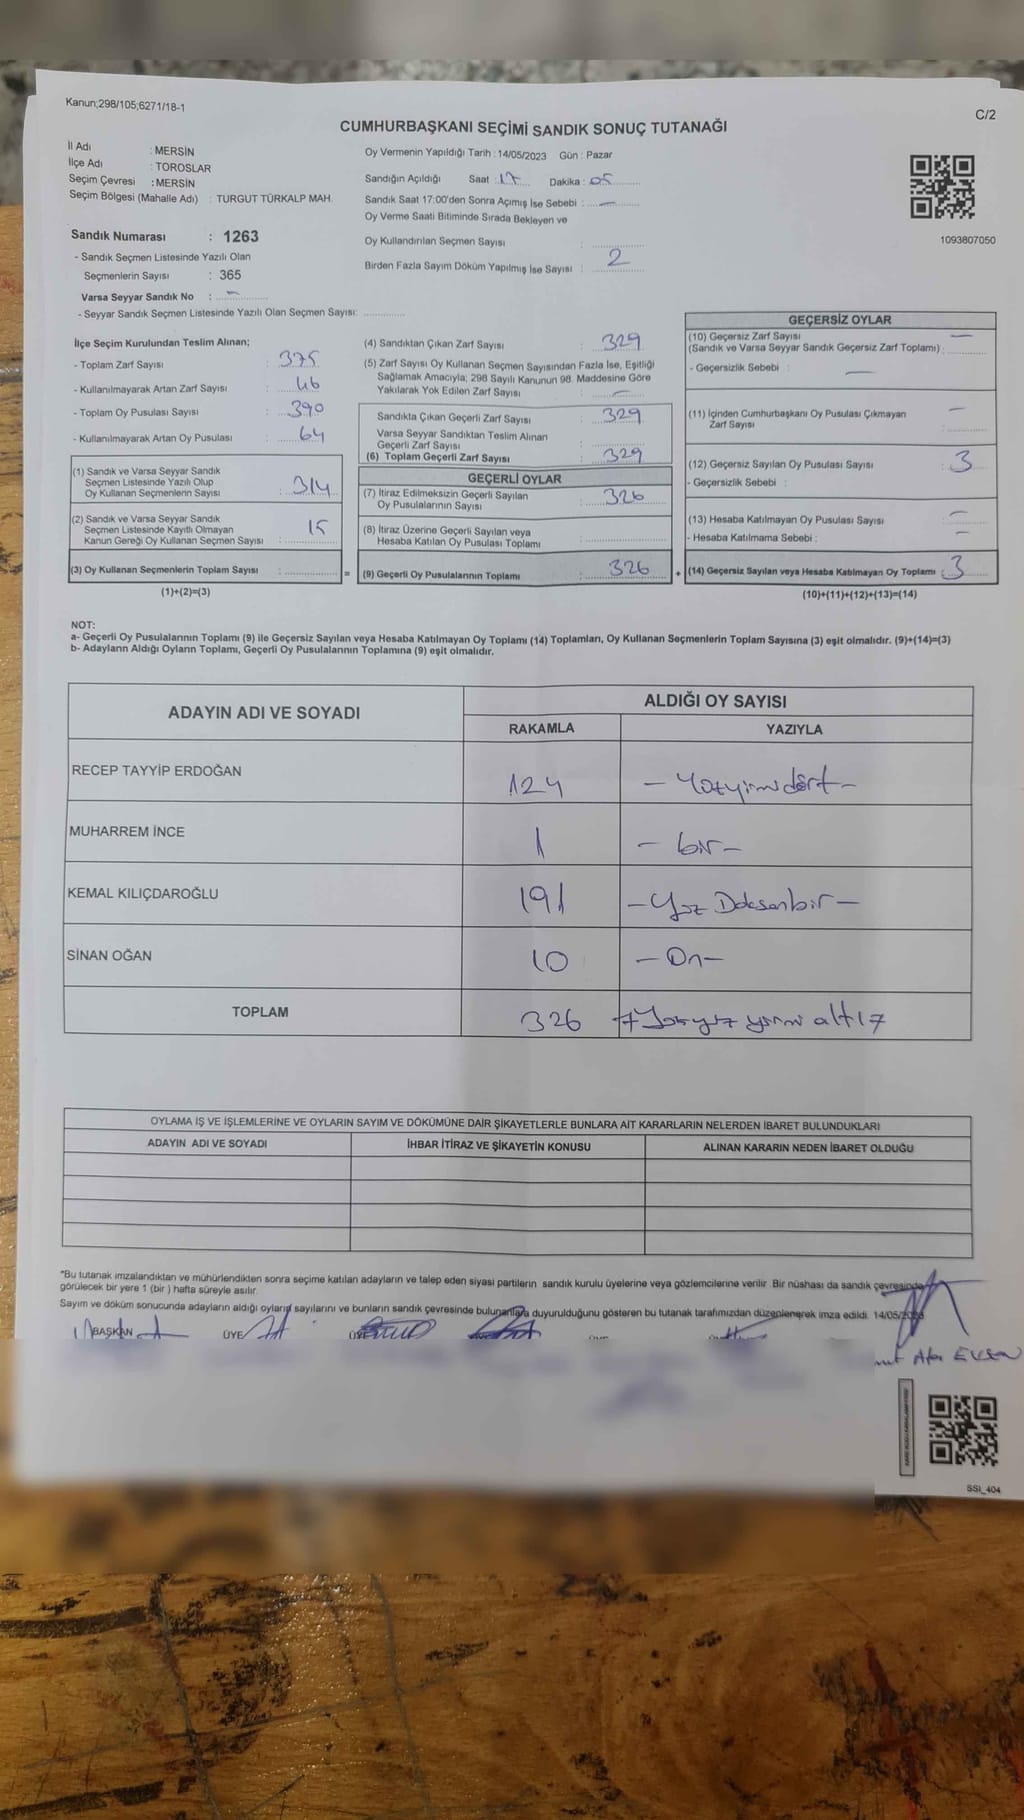 Kanun;298/105;6271/18-1
C/2
CUMHURBAŞKANI SEÇİMİ SANDIK SONUÇ TUTANAĞI
İl Adı : MERSİN
İlçe Adı : TOROSLAR
Seçim Çevresi : MERSİN
Seçim Bölgesi (Mahalle Adı) : TURGUT TÜRKALP MAH.
Sandık Numarası : 1263
- Sandık Seçmen Listesinde Yazılı Olan
Seçmenlerin Sayısı : 365
Varsa Seyyar Sandık No : –
- Seyyar Sandık Seçmen Listesinde Yazılı Olan Seçmen Sayısı:
Oy Vermenin Yapıldığı Tarih : 14/05/2023 Gün : Pazar
Sandığın Açıldığı Saat : 17 Dakika : 05
Sandık Saat 17:00'den Sonra Açımış İse Sebebi : –
Oy Verme Saati Bitiminde Sırada Bekleyen ve
Oy Kullandırılan Seçmen Sayısı :
Birden Fazla Sayım Döküm Yapılmış İse Sayısı : 2
1093807050
İlçe Seçim Kurulundan Teslim Alınan;
- Toplam Zarf Sayısı : 375
- Kullanılmayarak Artan Zarf Sayısı : 46
- Toplam Oy Pusulası Sayısı : 390
- Kullanılmayarak Artan Oy Pusulası : 64
(1) Sandık ve Varsa Seyyar Sandık
Seçmen Listesinde Yazılı Olup
Oy Kullanan Seçmenlerin Sayısı : 314
(2) Sandık ve Varsa Seyyar Sandık
Seçmen Listesinde Kayıtlı Olmayan
Kanun Gereği Oy Kullanan Seçmen Sayısı : 15
(3) Oy Kullanan Seçmenlerin Toplam Sayısı : =
(1)+(2)=(3)
(4) Sandıktan Çıkan Zarf Sayısı : 329
(5) Zarf Sayısı Oy Kullanan Seçmen Sayısından Fazla İse, Eşitliği
Sağlamak Amacıyla; 298 Sayılı Kanunun 98. Maddesine Göre
Yakılarak Yok Edilen Zarf Sayısı : –
Sandıkta Çıkan Geçerli Zarf Sayısı : 329
Varsa Seyyar Sandıktan Teslim Alınan
Geçerli Zarf Sayısı :
(6) Toplam Geçerli Zarf Sayısı : 329
GEÇERLİ OYLAR
(7) İtiraz Edilmeksizin Geçerli Sayılan
Oy Pusulalarının Sayısı : 326
(8) İtiraz Üzerine Geçerli Sayılan veya
Hesaba Katılan Oy Pusulası Toplamı :
(9) Geçerli Oy Pusulalarının Toplamı : 326 +
GEÇERSİZ OYLAR
(10) Geçersiz Zarf Sayısı –
(Sandık ve Varsa Seyyar Sandık Geçersiz Zarf Toplamı) :
- Geçersizlik Sebebi : –
(11) İçinden Cumhurbaşkanı Oy Pusulası Çıkmayan –
Zarf Sayısı :
(12) Geçersiz Sayılan Oy Pusulası Sayısı : 3
- Geçersizlik Sebebi :
(13) Hesaba Katılmayan Oy Pusulası Sayısı : –
- Hesaba Katılmama Sebebi : –
(14) Geçersiz Sayılan veya Hesaba Katılmayan Oy Toplamı : 3
(10)+(11)+(12)+(13)=(14)
NOT:
a- Geçerli Oy Pusulalarının Toplamı (9) ile Geçersiz Sayılan veya Hesaba Katılmayan Oy Toplamı (14) Toplamları, Oy Kullanan Seçmenlerin Toplam Sayısına (3) eşit olmalıdır. (9)+(14)=(3)
b- Adayların Aldığı Oyların Toplamı, Geçerli Oy Pusulalarının Toplamına (9) eşit olmalıdır.
ADAYIN ADI VE SOYADI
ALDIĞI OY SAYISI
RAKAMLA YAZIYLA
RECEP TAYYİP ERDOĞAN 124 – Yüzyirmidört –
MUHARREM İNCE 1 – bir –
KEMAL KILIÇDAROĞLU 191 – Yüz Doksanbir –
SİNAN OĞAN 10 – On –
TOPLAM 326 yirmi altı
OYLAMA İŞ VE İŞLEMLERİNE VE OYLARIN SAYIM VE DÖKÜMÜNE DAİR ŞİKAYETLERLE BUNLARA AİT KARARLARIN NELERDEN İBARET BULUNDUKLARI
ADAYIN ADI VE SOYADI İHBAR İTİRAZ VE ŞİKAYETİN KONUSU ALINAN KARARIN NEDEN İBARET OLDUĞU
*Bu tutanak imzalandıktan ve mühürlendikten sonra seçime katılan adayların ve talep eden siyasi partilerin sandık kurulu üyelerine veya gözlemcilerine verilir. Bir nüshası da sandık çevresinde
görülecek bir yere 1 (bir) hafta süreyle asılır.
Sayım ve döküm sonucunda adayların aldığı oyların sayılarını ve bunların sandık çevresinde bulunanlara duyurulduğunu gösteren bu tutanak tarafımızdan düzenlenerek imza edildi. 14/05/2023
BAŞKAN ÜYE ÜYE
SSI_404